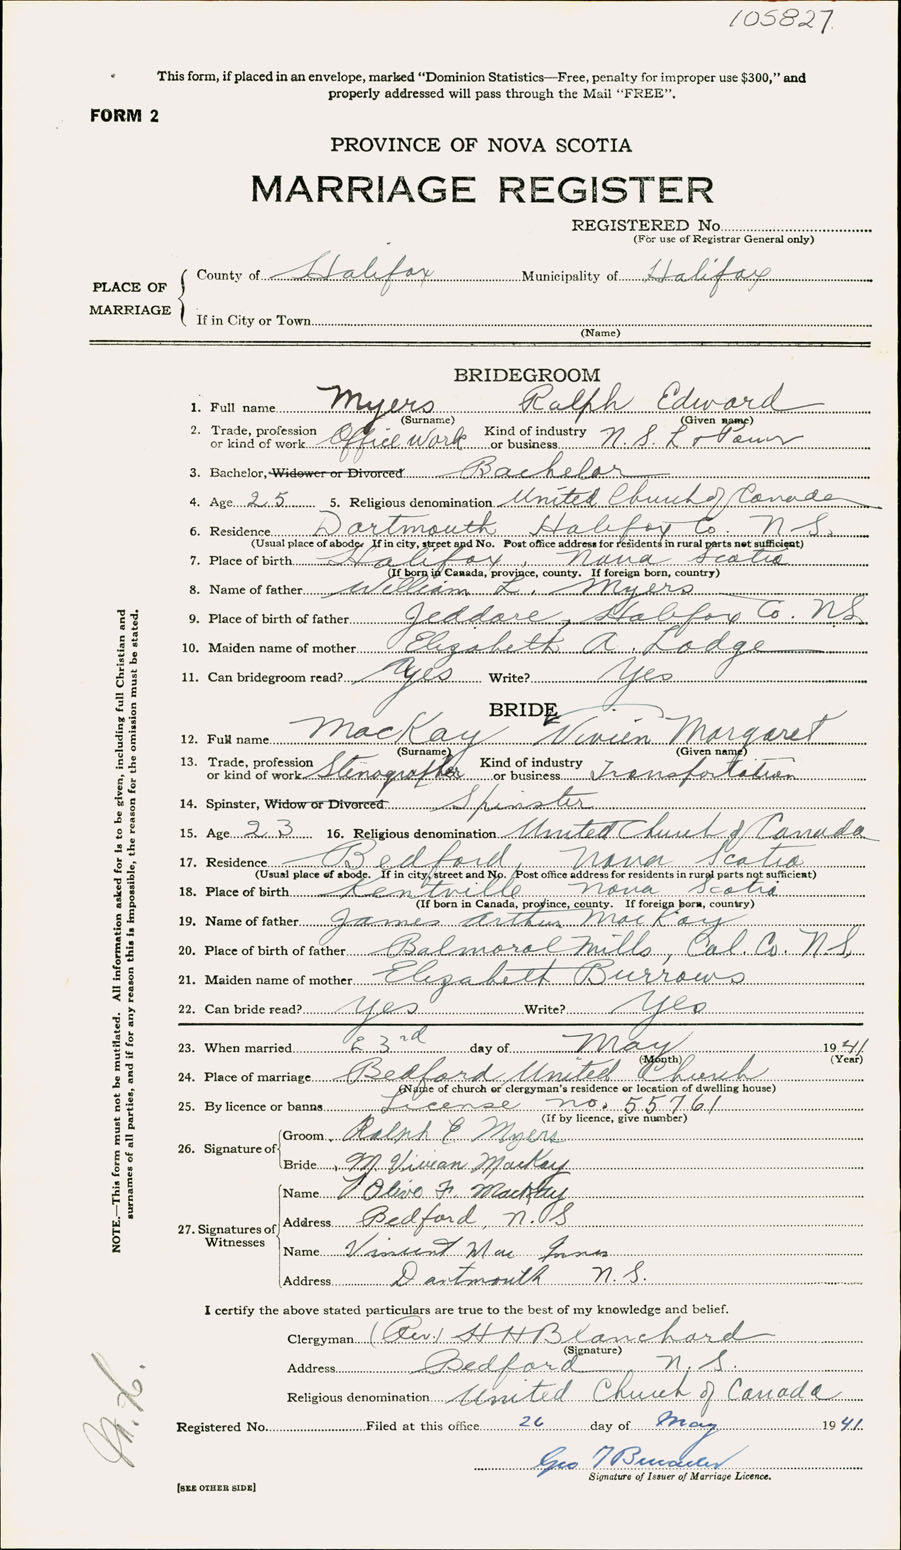 105827
This form, if placed in an envelope, marked "Dominion Statistics—Free, penalty for improper use $300," and
properly addressed will pass through the Mail "FREE".
FORM 2
PROVINCE OF NOVA SCOTIA
MARRIAGE REGISTER
REGISTERED No.
(For use of Registrar General only)
PLACE OF MARRIAGE
County of Halifax Municipality of Halifax
If in City or Town
(Name)
BRIDEGROOM
1. Full name Myers Ralph Edward
(Surname) (Given name)
2. Trade, profession or kind of work Office Work Kind of industry or business N.S. L & Power
3. Bachelor, Widower or Divorced Bachelor
4. Age 25 5. Religious denomination United Church of Canada
6. Residence Dartmouth Halifax Co. N.S.
(Usual place of abode. If in city, street and No. Post office address for residents in rural parts not sufficient)
7. Place of birth Halifax, Nova Scotia
(If born in Canada, province, county. If foreign born, country)
8. Name of father William L. Myers
9. Place of birth of father Jeddore, Halifax Co. N.S.
10. Maiden name of mother Elizabeth A. Lodge
11. Can bridegroom read? Yes Write? Yes
BRIDE
12. Full name MacKay Vivien Margaret
(Surname) (Given name)
13. Trade, profession or kind of work Stenographer Kind of industry or business Transportation
14. Spinster, Widow or Divorced Spinster
15. Age 23 16. Religious denomination United Church of Canada
17. Residence Bedford, Nova Scotia
(Usual place of abode. If in city, street and No. Post office address for residents in rural parts not sufficient)
18. Place of birth Kentville Nova Scotia
(If born in Canada, province, county. If foreign born, country)
19. Name of father James Arthur MacKay
20. Place of birth of father Balmoral Mills, Col. Co. N.S.
21. Maiden name of mother Elizabeth Burrows
22. Can bride read? Yes Write? Yes
23. When married 23rd day of May 1941
(Month) (Year)
24. Place of marriage Bedford United Church
(Name of church or clergyman's residence or location of dwelling house)
25. By licence or banns License no. 55761
(If by licence, give number)
26. Signature of
Groom Ralph E Myers
Bride M Vivian MacKay
27. Signatures of Witnesses
Name Olive F. MacKay
Address Bedford, N.S
Name Vincent Mac Innes
Address Dartmouth N.S.
I certify the above stated particulars are true to the best of my knowledge and belief.
Clergyman (Rev.) H H Blanchard
(Signature)
Address Bedford, N.S.
Religious denomination United Church of Canada
Registered No. Filed at this office 26 day of May 1941
Geo T
Signature of Issuer of Marriage Licence.
[SEE OTHER SIDE]
NOTE.—This form must not be mutilated. All information asked for is to be given, including full Christian and
surnames of all parties, and if for any reason this is impossible, the reason for the omission must be stated.